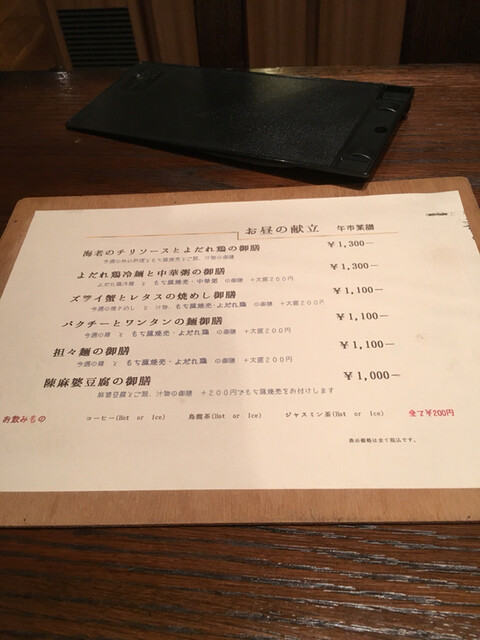 お昼の献立 年市菜譜
海老のチリソースとよだれ鶏の御膳 ¥1,300－
今週の熱い料理ともち豚焼売とご飯、汁物の御膳
よだれ鶏冷麺と中華粥の御膳 ¥1,300－
よだれ鶏冷麺 と もち豚焼売・中華粥 の御膳 +大盛200円
ズワイ蟹とレタスの焼めし御膳 ¥1,100－
今週の焼きめし と 汁物、もち豚焼売・よだれ鶏 の御膳 +大盛200円
パクチーとワンタンの麺御膳 ¥1,100－
今週の麺 と もち豚焼売・よだれ鶏 の御膳 +大盛200円
担々麺の御膳 ¥1,100－
今週の麺 と もち豚焼売・よだれ鶏 の御膳 +大盛200円
陳麻婆豆腐の御膳 ¥1,000－
麻婆豆腐とご飯、汁物の御膳 +200円でもち豚焼売をお付けします
お飲みもの コーヒー(Hot or Ice) 烏龍茶(Hot or Ice) ジャスミン茶(Hot or Ice) 全て¥200円
表示価格は全て税込です。